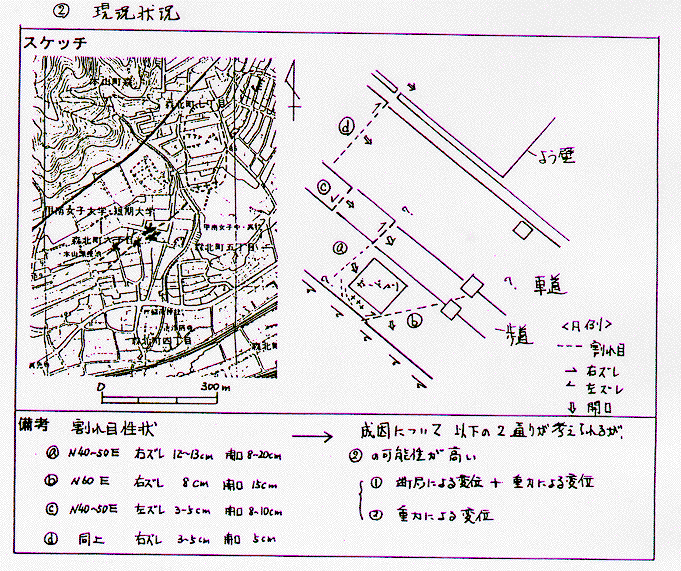 ② 現況状況
スケッチ
本山町森
森北町七丁目
甲南女子大学・短期大学
甲南女子中・高校
森北町六丁目
森北町五丁目
森北町四丁目
森北町
0 300m
ⓓ
ⓒ
ⓐ
ⓑ
?
?
?
よう壁
車道
歩道
<凡例>
割れ目
右ズレ
左ズレ
開口
備考 割れ目性状
ⓐ N40~50E 右ズレ 12~13cm 開口 8~20cm
ⓑ N60E 右ズレ 8cm 開口 15cm
ⓒ N40~50E 左ズレ 3~5cm 開口 8~10cm
ⓓ 同上 右ズレ 3~5cm 開口 5cm
→ 成因について以下の2通りが考えられるが、
②の可能性が高い
① 断層による変位 + 重力による変位
② 重力による変位